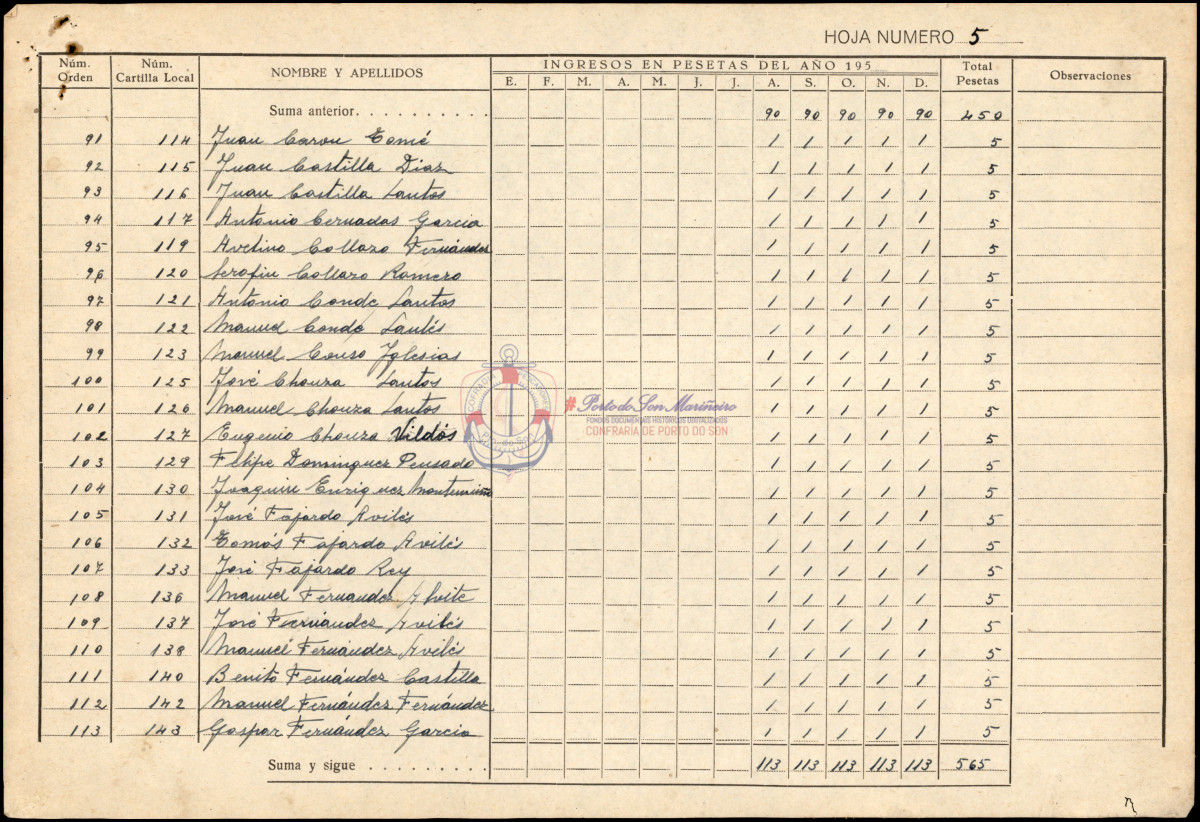 HOJA NUMERO 5
Núm. Orden Núm. Cartilla Local NOMBRE Y APELLIDOS INGRESOS EN PESETAS DEL AÑO 195 Total Pesetas Observaciones
E. F. M. A. M. J. J. A. S. O. N. D.
Suma anterior. . . . . . . . . . . 90 90 90 90 90 450
91 114 Juan Carou Tomé 1 1 1 1 1 5
92 115 Juan Castilla Diaz 1 1 1 1 1 5
93 116 Juan Castilla Santos 1 1 1 1 1 5
94 117 Antonio Cernadas Garcia 1 1 1 1 1 5
95 119 Avelino Collazo Fernández 1 1 1 1 1 5
96 120 Serafin Collazo Romero 1 1 1 1 1 5
97 121 Antonio Conde Santos 1 1 1 1 1 5
98 122 Manuel Conde 1 1 1 1 1 5
99 123 Manuel Couso Iglesias 1 1 1 1 1 5
100 125 José Chouza Santos 1 1 1 1 1 5
101 126 Manuel Chouza Santos 1 1 1 1 1 5
102 127 Eugenio Chouza Vildós 1 1 1 1 1 5
103 129 Felipe Dominguez Pensado 1 1 1 1 1 5
104 130 Joaquin Enriquez 1 1 1 1 1 5
105 131 José Fajardo Avilés 1 1 1 1 1 5
106 132 Tomás Fajardo Avilés 1 1 1 1 1 5
107 133 José Fajardo Rey 1 1 1 1 1 5
108 136 Manuel Fernandez Alvite 1 1 1 1 1 5
109 137 José Fernández Avilés 1 1 1 1 1 5
110 138 Manuel Fernández Avilés 1 1 1 1 1 5
111 140 Benito Fernández Castilla 1 1 1 1 1 5
112 142 Manuel Fernández Fernández 1 1 1 1 1 5
113 143 Gaspar Fernández Garcia 1 1 1 1 1 5
Suma y sigue . . . . . . . . . 113 113 113 113 113 565
#Porto do Son Mariñeiro
FONDOS DOCUMENTAIS HISTÓRICOS DIGITALIZADOS
CONFRARÍA DE PORTO DO SON